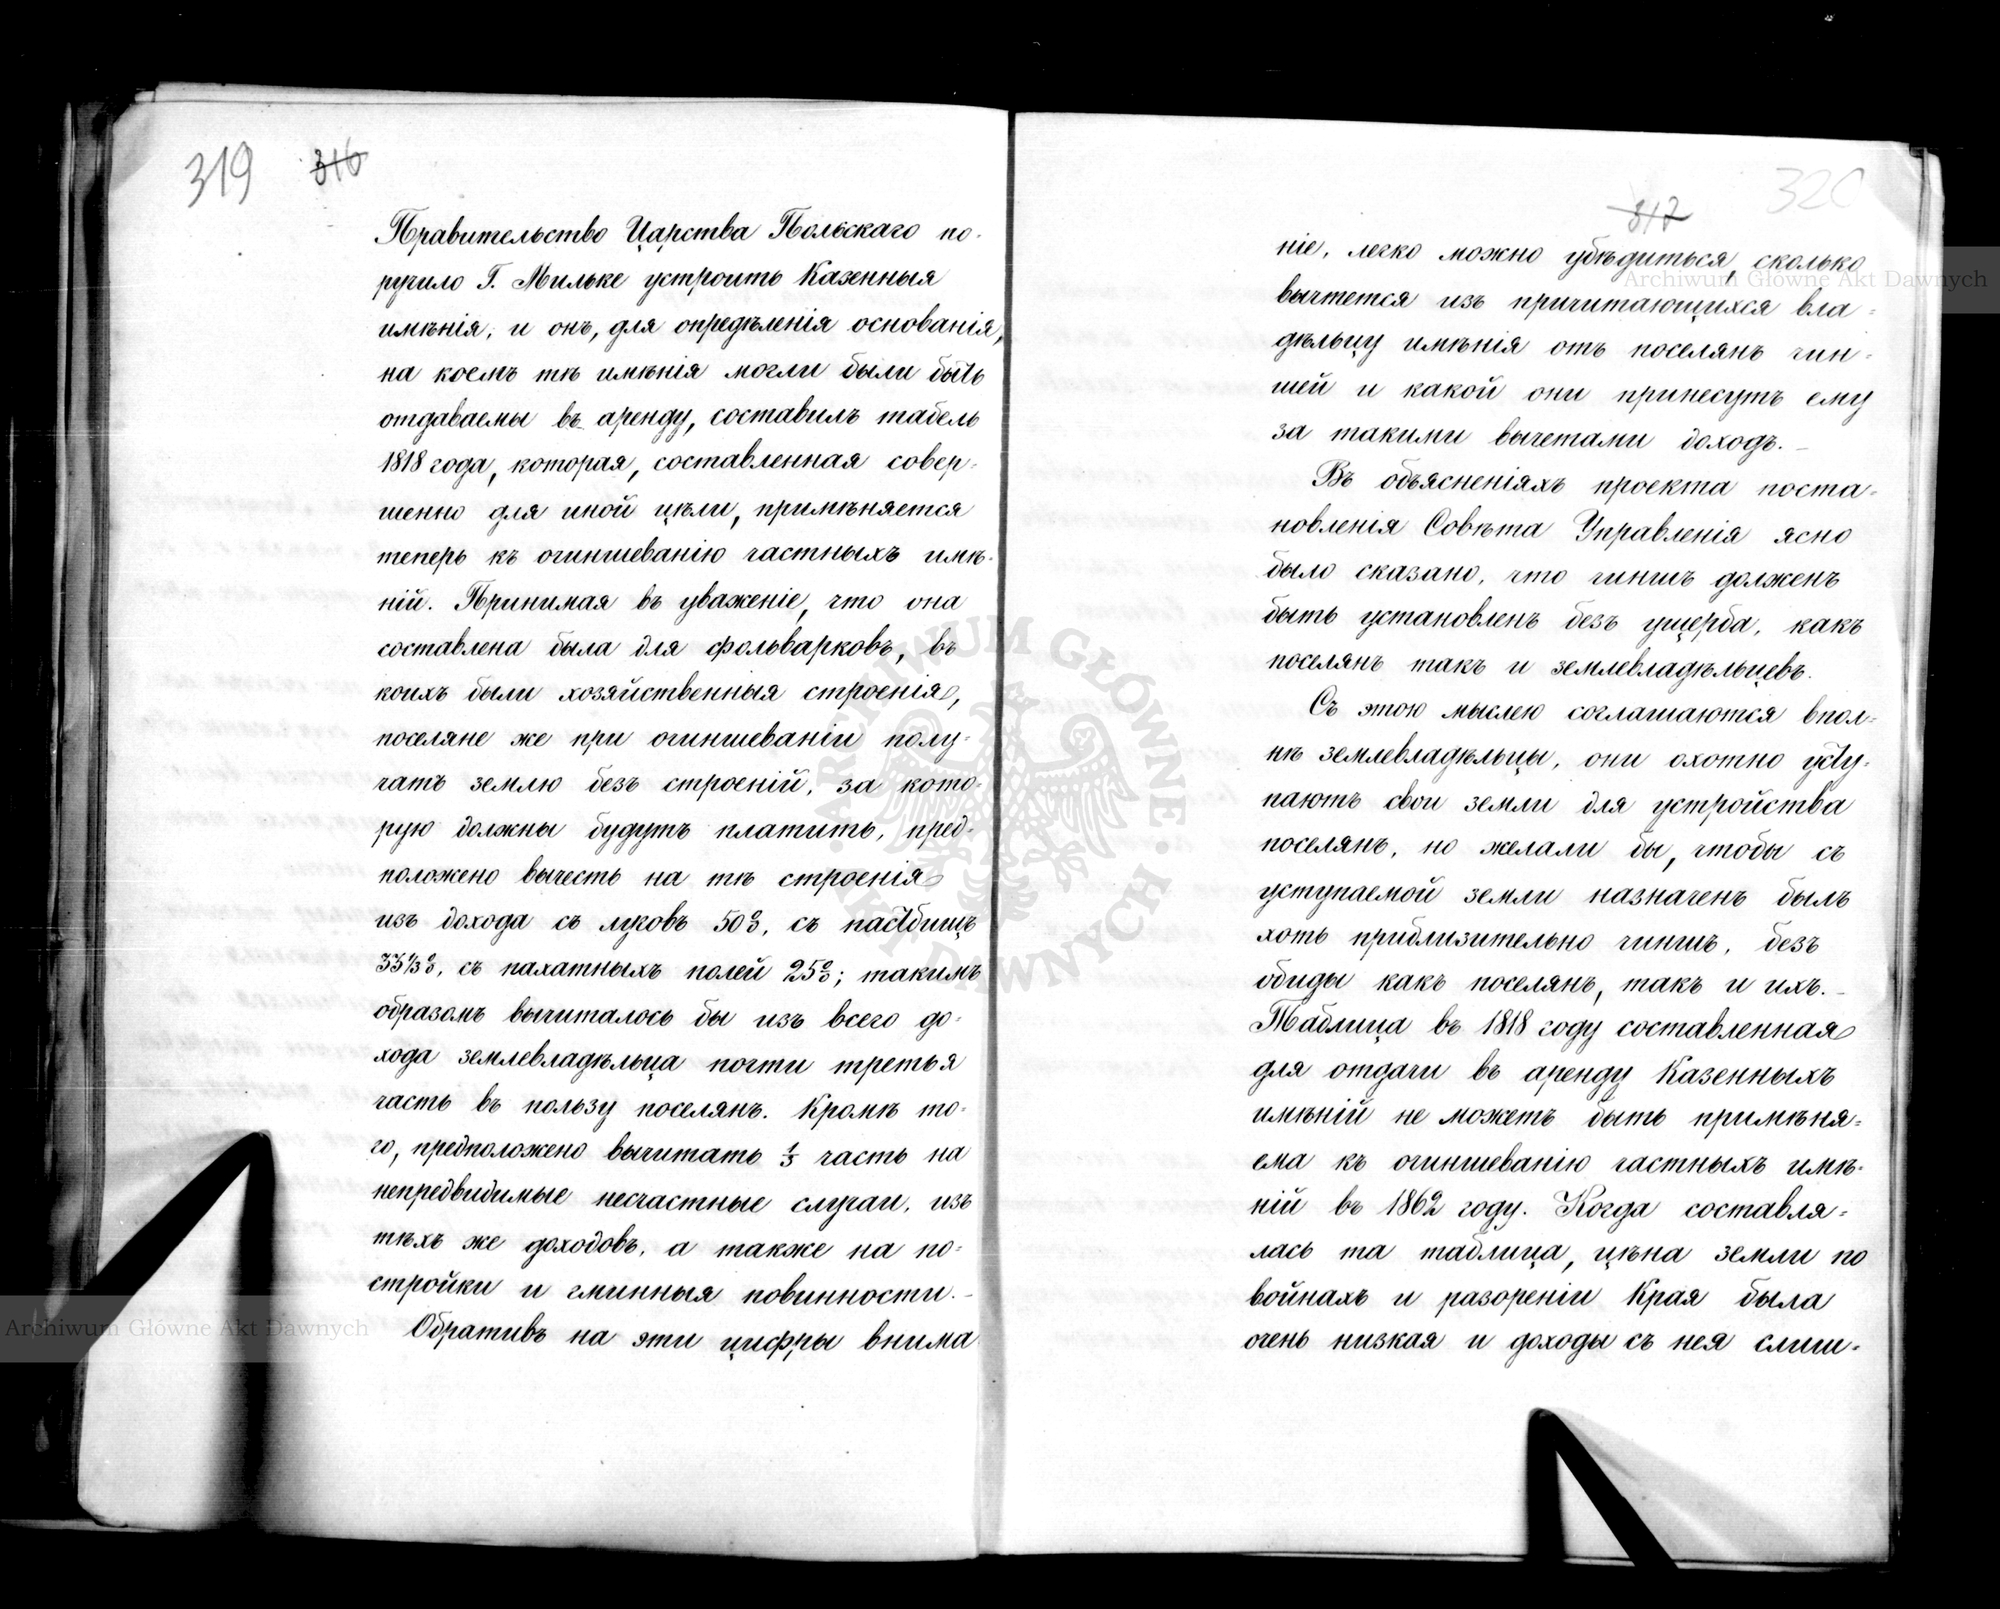 319 316
Правительство Царства Польскаго по-
ручило Г. Мильке устроить Казенныя
имѣнія, и онъ, для опредѣленія основанія,
на коемъ тѣ имѣнія могли были быть
отдаваемы въ аренду, составилъ табель
1818 года, которая, составленная совер-
шенно для иной цѣли, примѣняется
теперь къ очиншеванію частныхъ имѣ-
ній. Принимая въ уваженіе, что она
составлена была для фольварковъ, въ
коихъ были хозяйственныя строенія,
поселяне же при очиншеваніи полу-
чатъ землю безъ строеній, за кото-
рую должны будутъ платить, пред-
положено вычесть на тѣ строенія
изъ дохода съ луковъ 50%, съ пастбищъ
33⅓%, съ пахатныхъ полей 25%; такимъ
образомъ вычиталось бы изъ всего до-
хода землевладѣльца почти третья
часть въ пользу поселянъ. Кромѣ то-
го, предположено вычитать ⅓ часть на
непредвидимые несчастные случаи, изъ
тѣхъ же доходовъ, а также на по-
стройки и гминныя повинности.-
Обративъ на эти цифры внима
317 320
ніе, легко можно убѣдиться, сколько
вычтется изъ причитающихся вла-
дѣльцу имѣнія отъ поселянъ чин-
шей и какой они принесутъ ему
за такими вычетами доходъ.-
Въ объясненіяхъ проекта поста-
новленія Совѣта Управленія ясно
было сказано, что чиншъ долженъ
быть установленъ безъ ущерба, какъ
поселянъ такъ и землевладѣльцевъ.
Съ этою мыслею соглашаются впол-
нѣ землевладѣльцы, они охотно усту-
паютъ свои земли для устройства
поселянъ, но желали бы, чтобы съ
уступаемой земли назначенъ былъ
хоть приблизительно чиншъ, безъ
обиды какъ поселянъ, такъ и ихъ.-
Таблица въ 1818 году составленная
для отдачи въ аренду Казенныхъ
имѣній не можетъ быть примѣня-
ема къ очиншеванію частныхъ имѣ-
ній въ 1862 году. Когда составля-
лась та таблица, цѣна земли по
войнахъ и разореніи Края была
очень низкая и доходы съ нея слиш-
Archiwum Główne Akt Dawnych
Archiwum Główne Akt Dawnych
ARCHIWUM GŁÓWNE AKT DAWNYCH